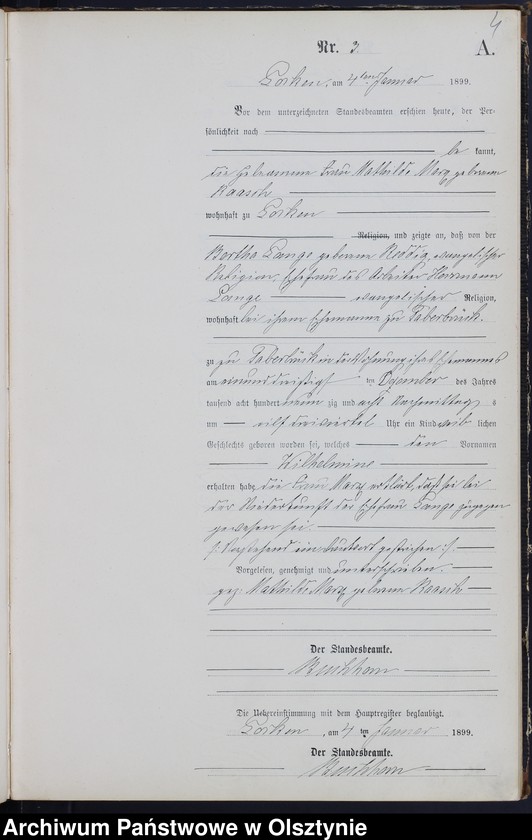 4
Nr. 3 A.
Gorken, am 4ten Januar 1899.
Vor dem unterzeichneten Standesbeamten erschien heute, der Per-
sönlichkeit nach
be kannt,
die Hebeamme Frau Mathilde Marx geborene
Raasch
wohnhaft zu Gorken
Religion, und zeigte an, daß von der
Bertha Lange geborene Reddig, evangelischer
Religion, Ehefrau des Arbeiter Herrmann
Lange evangelischer Religion,
wohnhaft bei ihrem Ehemanne zu Taberbrück.
zu zu Taberbrück in der Wohnung ihres Ehemannes
am einunddreißigsten Dezember des Jahres
tausend acht hundert neun zig und acht Nachmittag s
um eilf dreiviertel Uhr ein Kind weib lichen
Geschlechts geboren worden sei, welches den Vornamen
Wilhelmine
erhalten habe die Frau Marx erklärt, daß sie bei
der Niederkunft der Ehefrau Lange zugegen
gewesen sei.
Vorstehend ein Druckwort gestrichen
Vorgelesen, genehmigt und unterschrieben.
gez. Mathilde Marx geborene Raasch
Der Standesbeamte.
Die Uebereinstimmung mit dem Hauptregister beglaubigt.
Gorken, am 4 ten Januar 1899.
Der Standesbeamte.
Archiwum Państwowe w Olsztynie